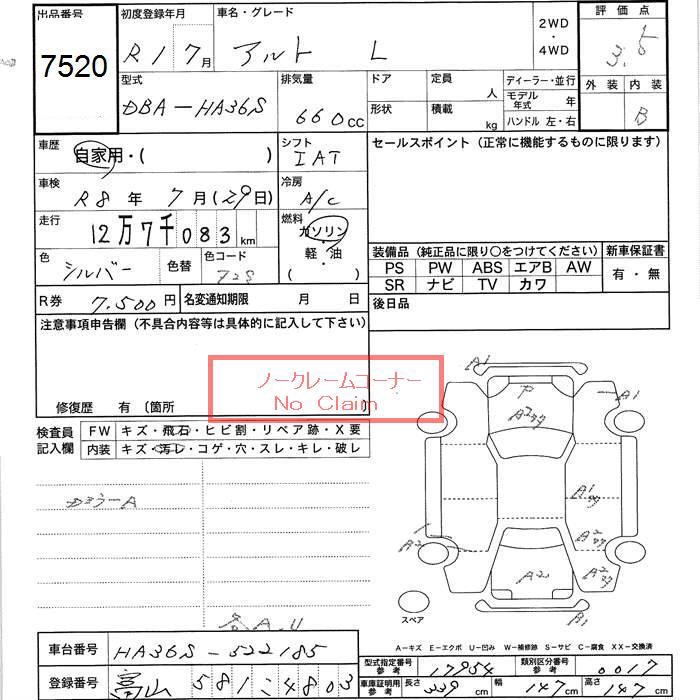 出品番号 初度登録年月 車名・グレード 2WD・4WD 評価点
7520 R1 7月 アルト L 3.5
型式 排気量 ドア 定員 人 ディーラー・並行 外装 内装
DBA-HA36S 660cc 形状 積載 kg モデル年式 年 B
ハンドル 左・右
車歴 自家用・( ) シフト IAT セールスポイント (正常に機能するものに限ります)
車検 R8年 7月(29日) 冷房 A/C
走行 12万7千083km 燃料 ガソリン・軽・油 ( )
色 シルバー 色替 色コード 装備品 (純正品に限り○をつけてください) 新車保証書
PS PW ABS エアB AW 有・無
SR ナビ TV カワ
R券 7.500円 名変通知期限 月 日 後日品
注意事項申告欄 (不具合内容等は具体的に記入して下さい)
ノークレームコーナー
No Claim
修復歴 有 〔箇所 〕
検査員記入欄 FW キズ・飛石・ヒビ割・リペア跡・X要
内装 キズ・汚レ・コゲ・穴・スレ・キレ・破レ
A1
A1
A2
A1
A2
A2
A2
A2
B1
スペア
A-キズ E-エクボ U-凹み W-補修跡 S-サビ C-腐食 XX-交換済
車台番号 HA36S-522185
型式指定番号 参考 17954 類別区分番号 参考 0017
登録番号 富山 581 4803
車庫証明用 参考 長さ 339cm 幅 147cm 高さ 147cm